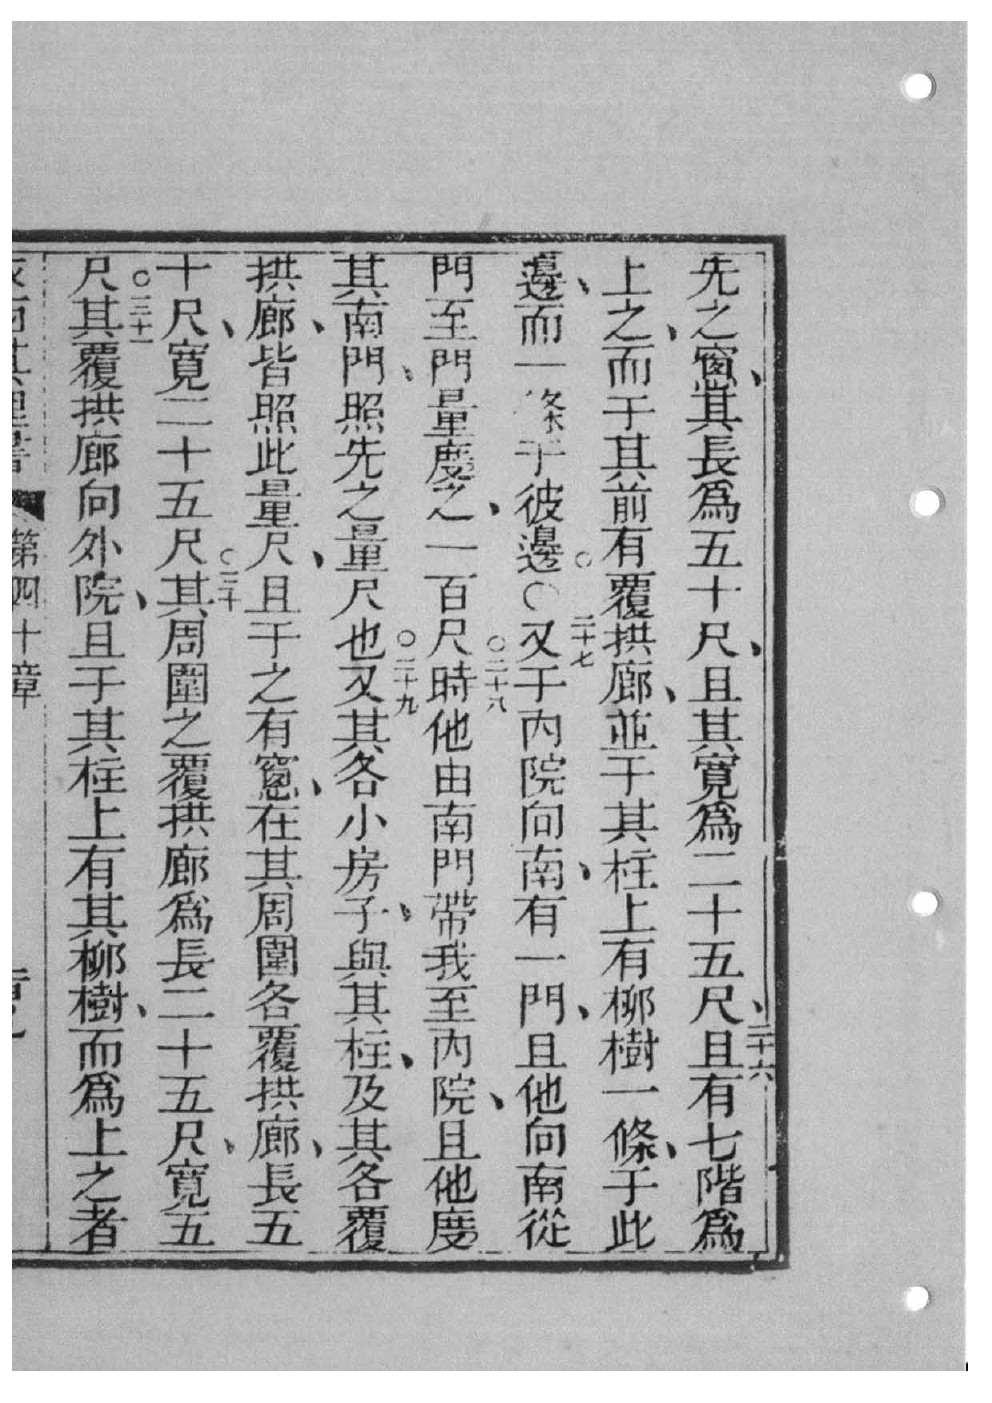 先之窻、其長爲五十尺、且其寬爲二十五尺、二十六且有七階爲
上之、而于其前有覆拱廊、並于其柱上有柳樹一條、于此
邊、而一條于彼邊○二十七又于內院向南、有一門、且他向南從
門至門量度之、一百尺○二十八時他由南門帶我至內院、且他度
其南門、照先之量尺也○二十九又其各小房子、與其柱、及其各覆
拱廊、皆照此量尺、且于之有窻、在其周圍各覆拱廊、長五
十尺、寬二十五尺○三十其周圍之覆拱廊爲長二十五尺、寬五
尺○三十一其覆拱廊向外院、且于其柱上有其柳樹、而爲上之者
第四十章